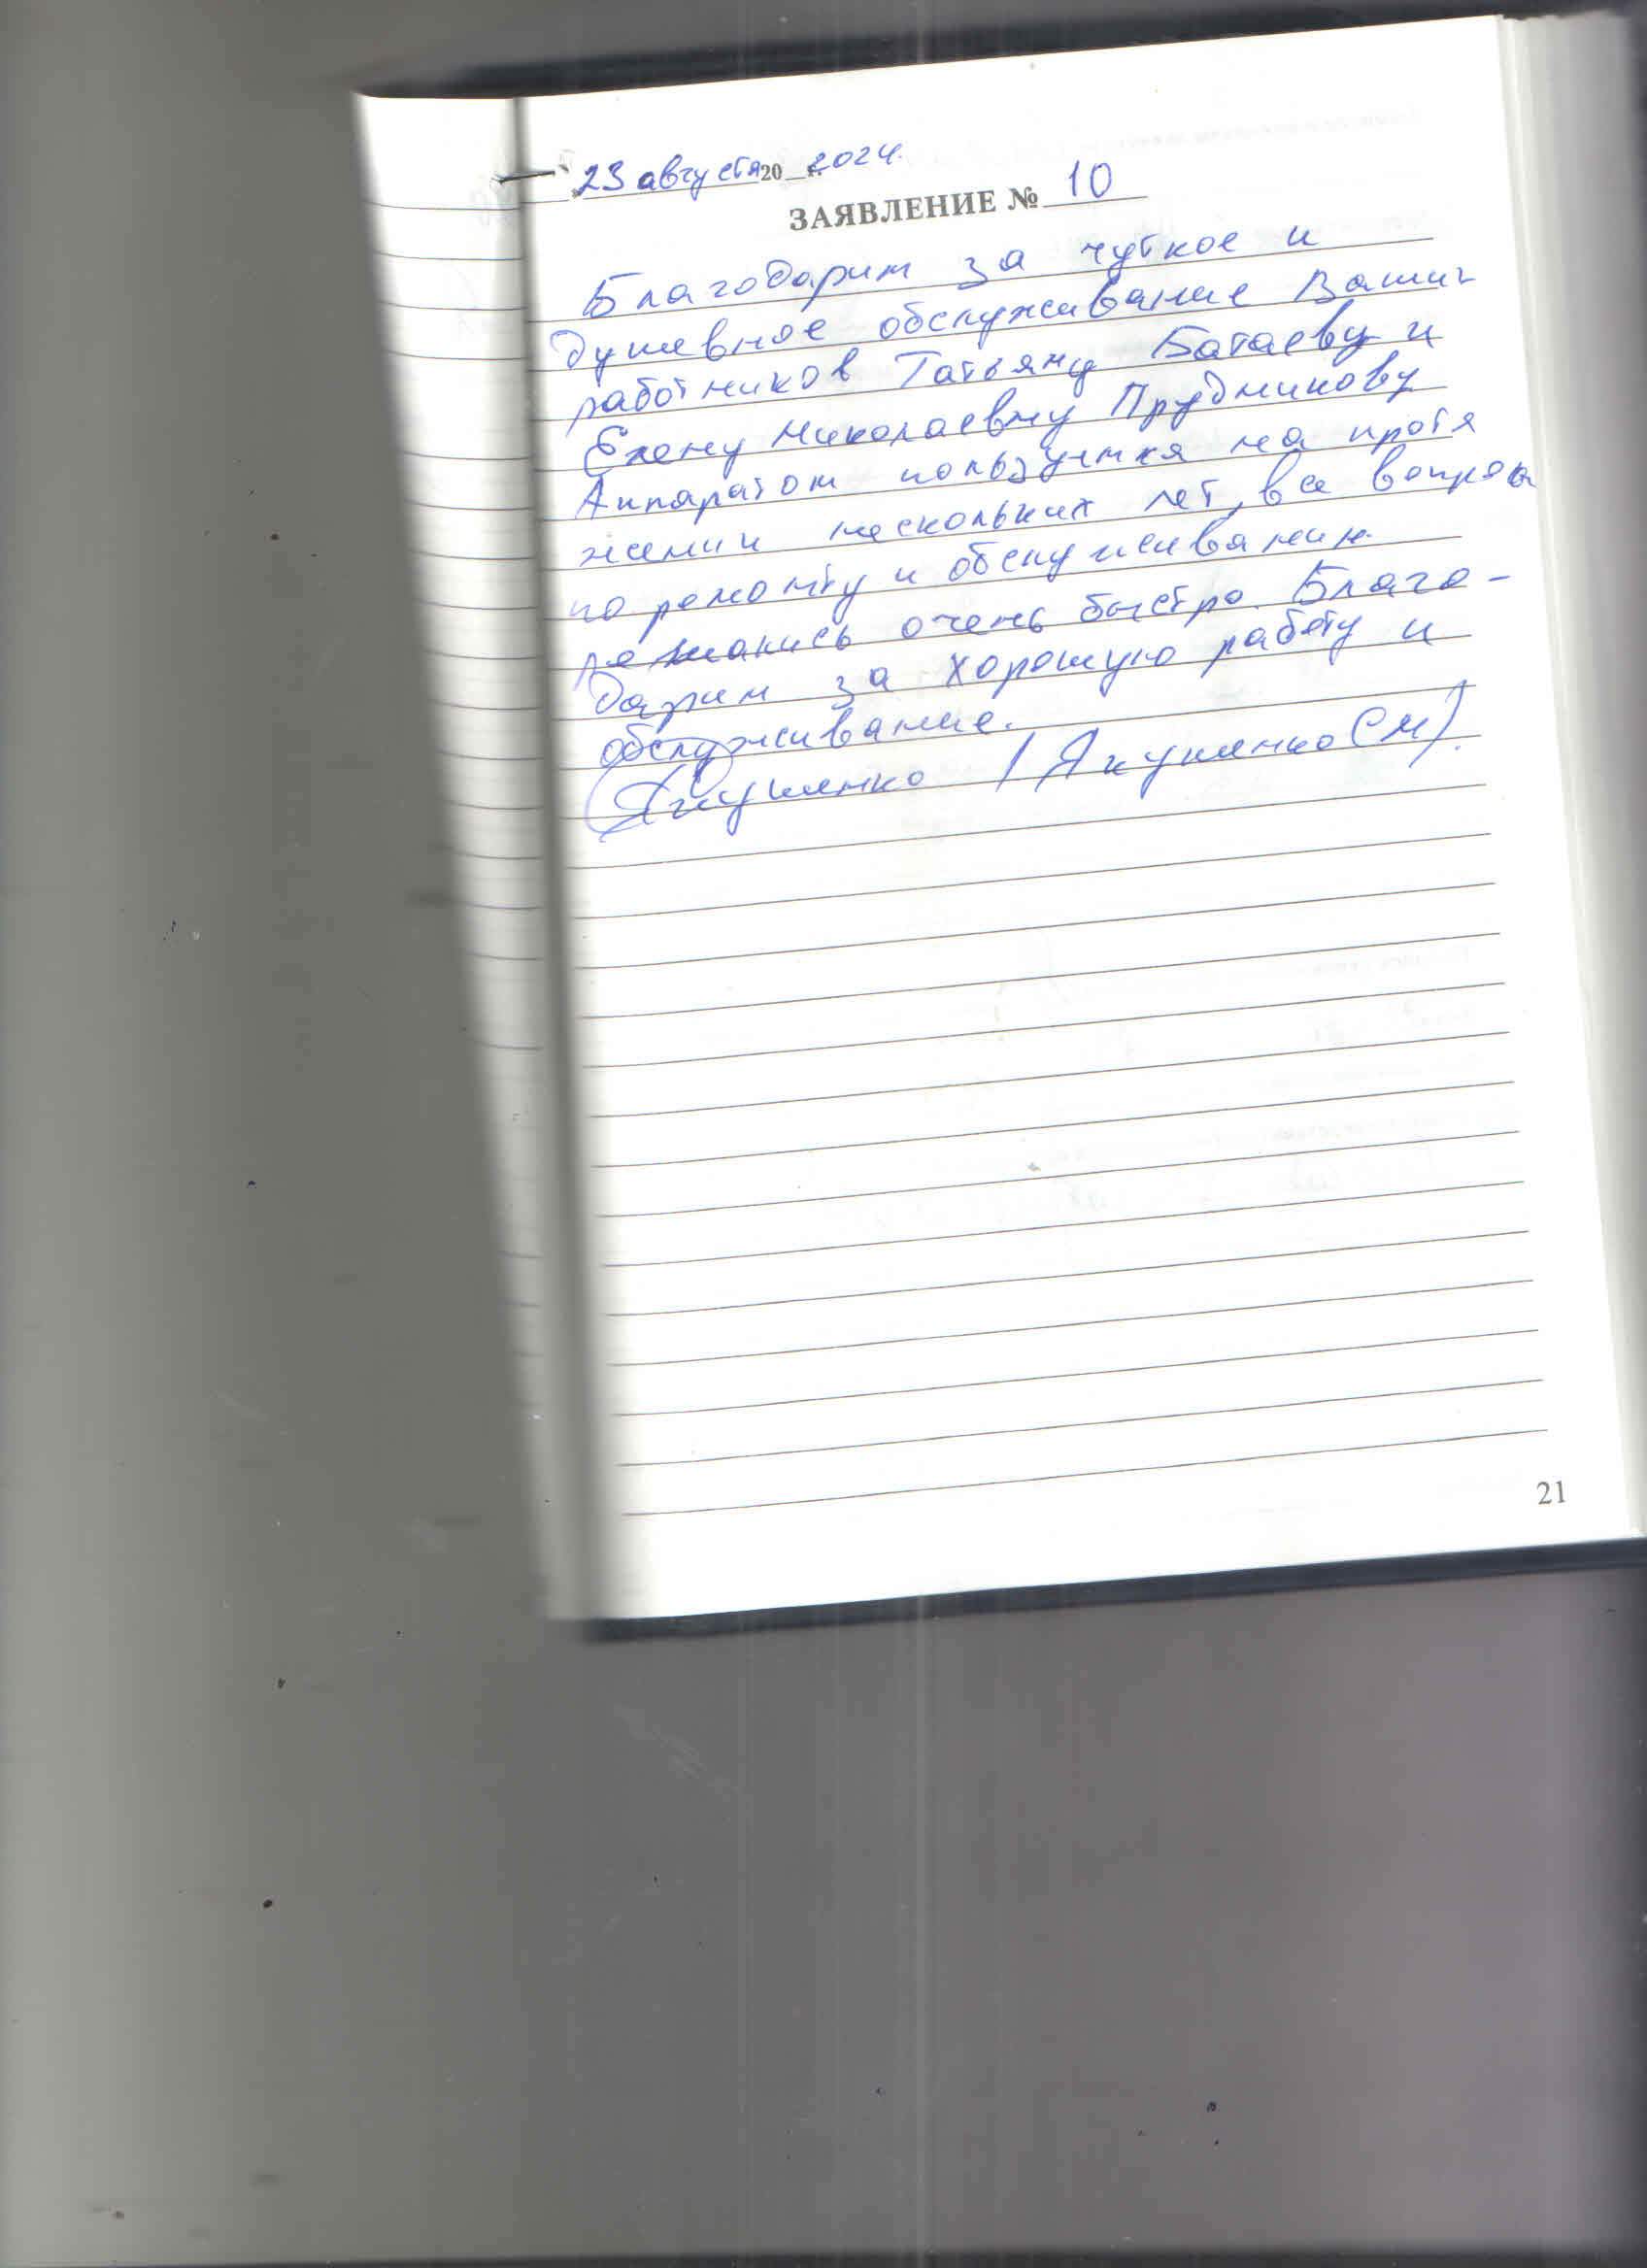 23 августа 20__ 2024.
ЗАЯВЛЕНИЕ № 10
Благодарим за чуткое и
душевное обслуживание Ваших
работников Татьяну Батаеву и
Елену Николаевну Прудникову
Аппаратом пользуемся на протя
жении нескольких лет, все вопросы
по ремонту и обслуживанию
решались очень быстро. Благо-
дарим за хорошую работу и
обслуживание.
(Якушенко / Якушенко СМ).
21